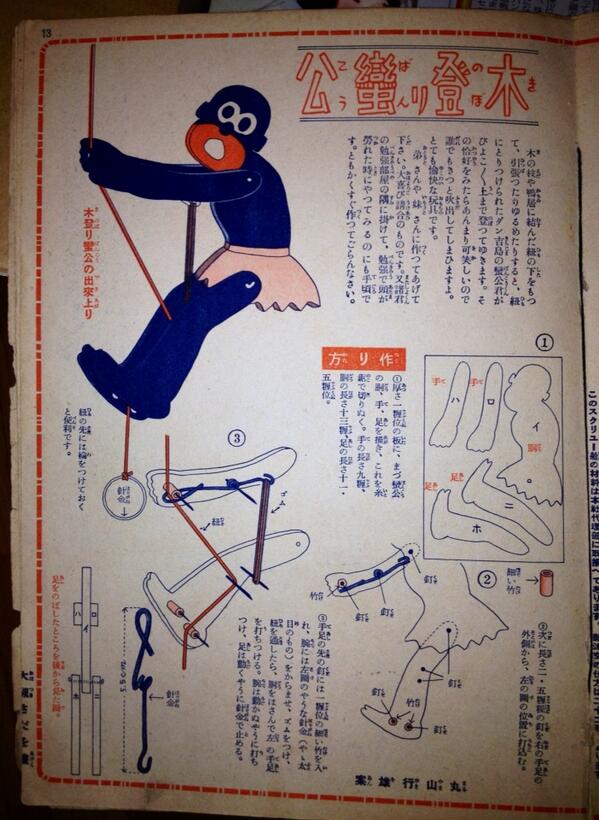 13
木登り蠻公
木の枝や鴨居に結んだ紐の下をもつ
て、引張つたりゆるめたりすると、紐
にとりつけられたダン吉島の蠻公君が
ぴよこ〳〵上まで登つてゆきます。そ
の恰好をみたらあんまり可笑しいので
誰でもきつと吹出してしまひますよ。
とても愉快な玩具です。
弟さんや妹さんに作つてあげて
下さい。大喜び請合のものです。又諸君
の勉強部屋の隅に掛けて、勉強で頭が
勞れた時にやつてみるのにも手頃で
す。ともかくすぐ作つてごらんなさい。
木登り蠻公の出來上り
作り方
①厚さ一糎位の板に、まづ蠻公
の胴、手、足を描き、これを糸
鋸で切りぬく。手の長さ九糎、
胴の長さ十三糎、足の長さ十一・
五糎位。
①
手
ハ
手
ロ
イ
胴
足
ホ
足
ニ
②
細い竹
釘
竹
釘
釘
釘
釘
竹
釘
②次に長さ二、五糎程の釘を右の手足の
外側から、左の圖の位置に打込む。
③
ゴム
紐
③手足の先の釘には一糎位の細い竹を入
れ、腕には左圖のやうな針金(やゝ太
目のもの)をからませ、ゴムをつけ、
紐を通したら、胴をはさんで左の手足
を打ちつける。腕は動かぬやうに打ち
つけ、足は動くやうに針金で止める。
針金
紐の先には輪をつけておく
と便利です。
針金
ハ
イ
ロ
ホ
ニ
足をのばしたところを後から見た圖。
丸山行雄案
このスクリュー船の材料は本社代理部に取揃へてあります。